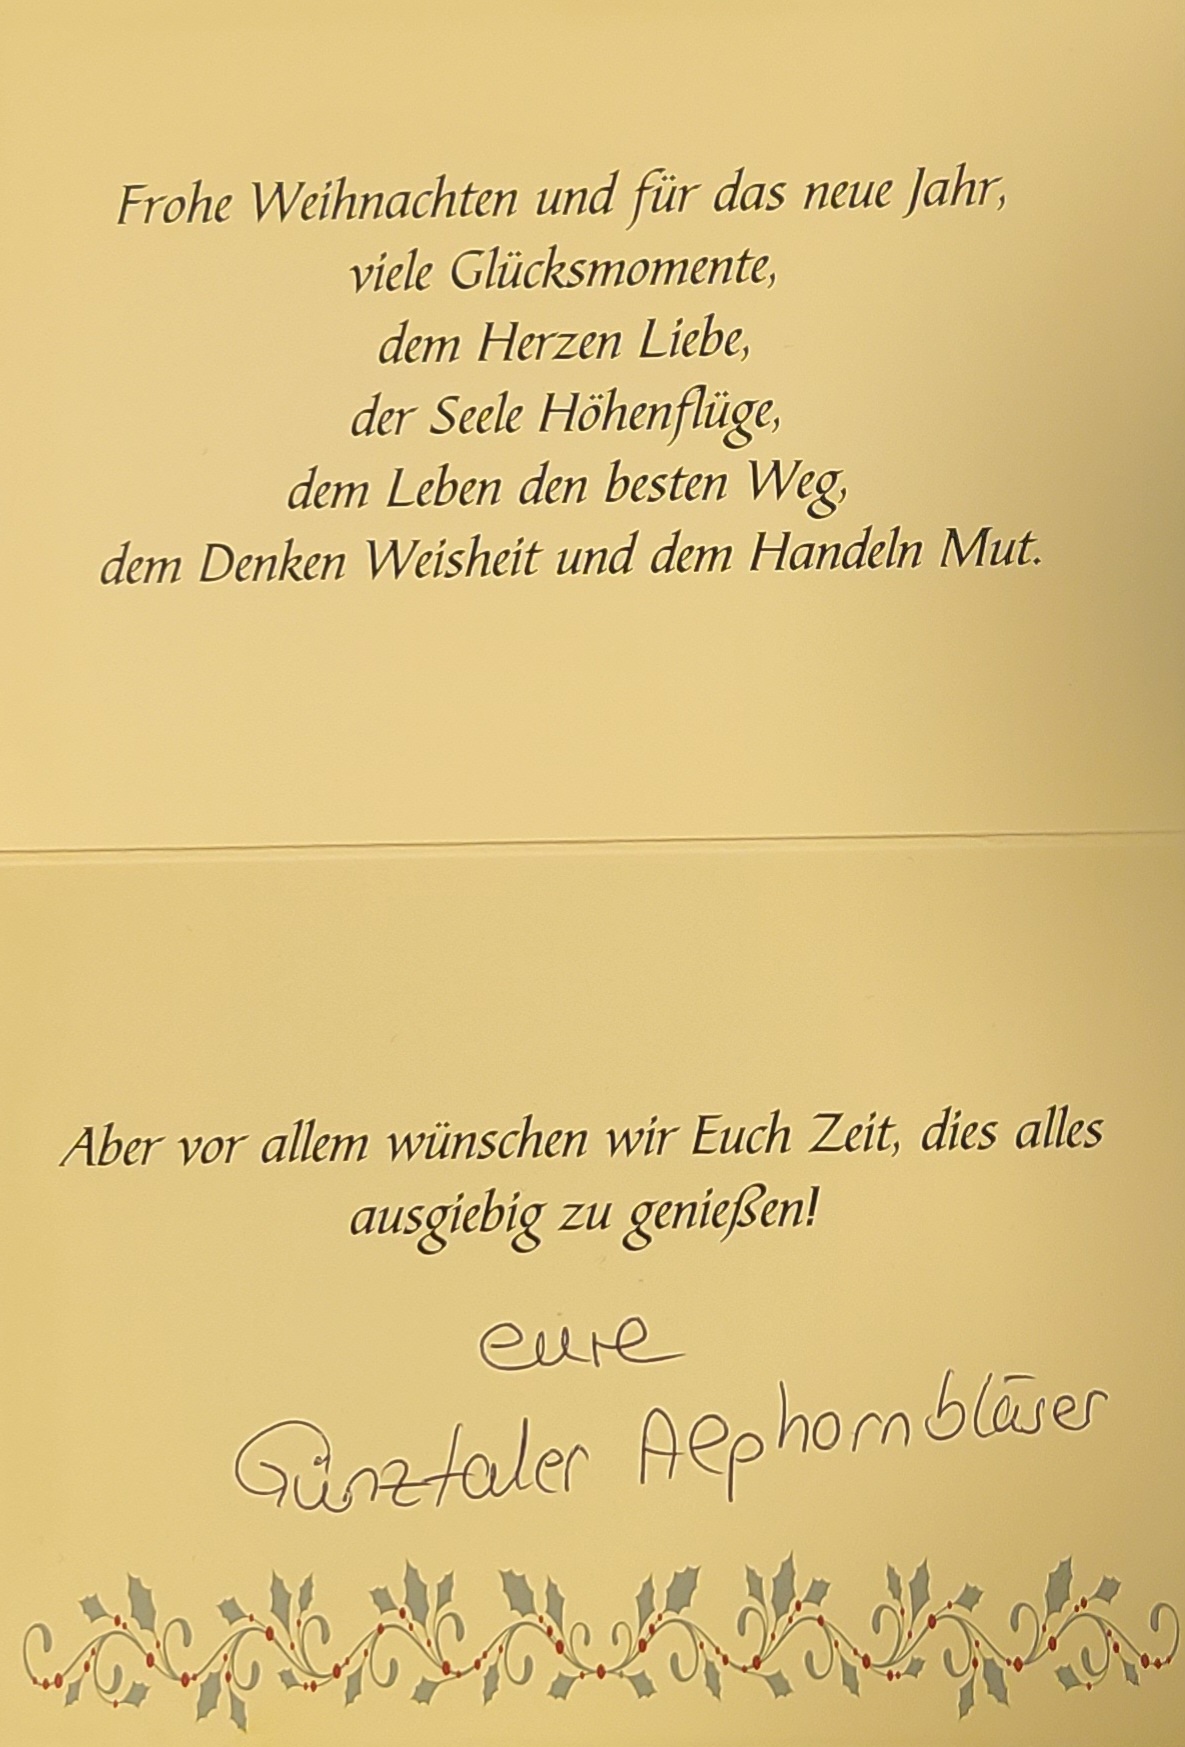 Frohe Weihnachten und für das neue Jahr,
viele Glücksmomente,
dem Herzen Liebe,
der Seele Höhenflüge,
dem Leben den besten Weg,
dem Denken Weisheit und dem Handeln Mut.
Aber vor allem wünschen wir Euch Zeit, dies alles
ausgiebig zu genießen!
eure
Günztaler Alphornbläser